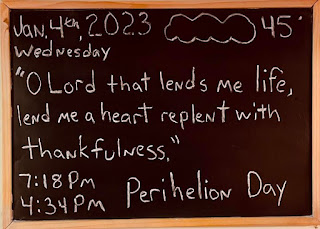 Jan. 4th, 2023 45°
Wednesday
"O Lord that lends me life,
lend me a heart replent with
thankfulness."
7:18 Pm Perihelion Day
4:34 PM